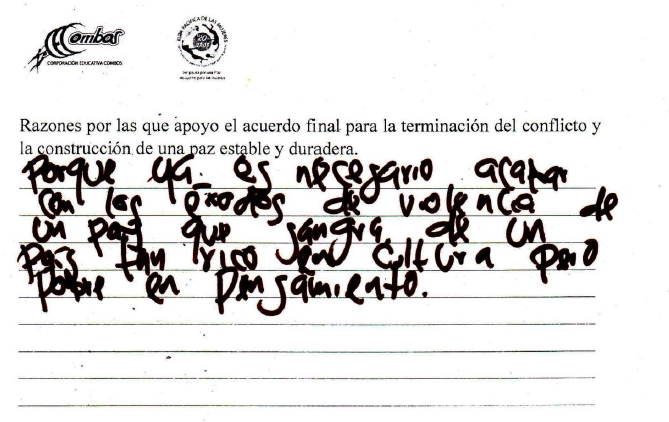 Combos
CORPORACIÓN EDUCATIVA COMBOS
RUTA PACÍFICA DE LAS MUJERES
20 AÑOS
Razones por las que apoyo el acuerdo final para la terminación del conflicto y
la construcción de una paz estable y duradera.
Porque ya es necesario acabar
con los éxodos de violencia de
un país que sangra de un
País tan rico en cultura pero
pobre en pensamiento.